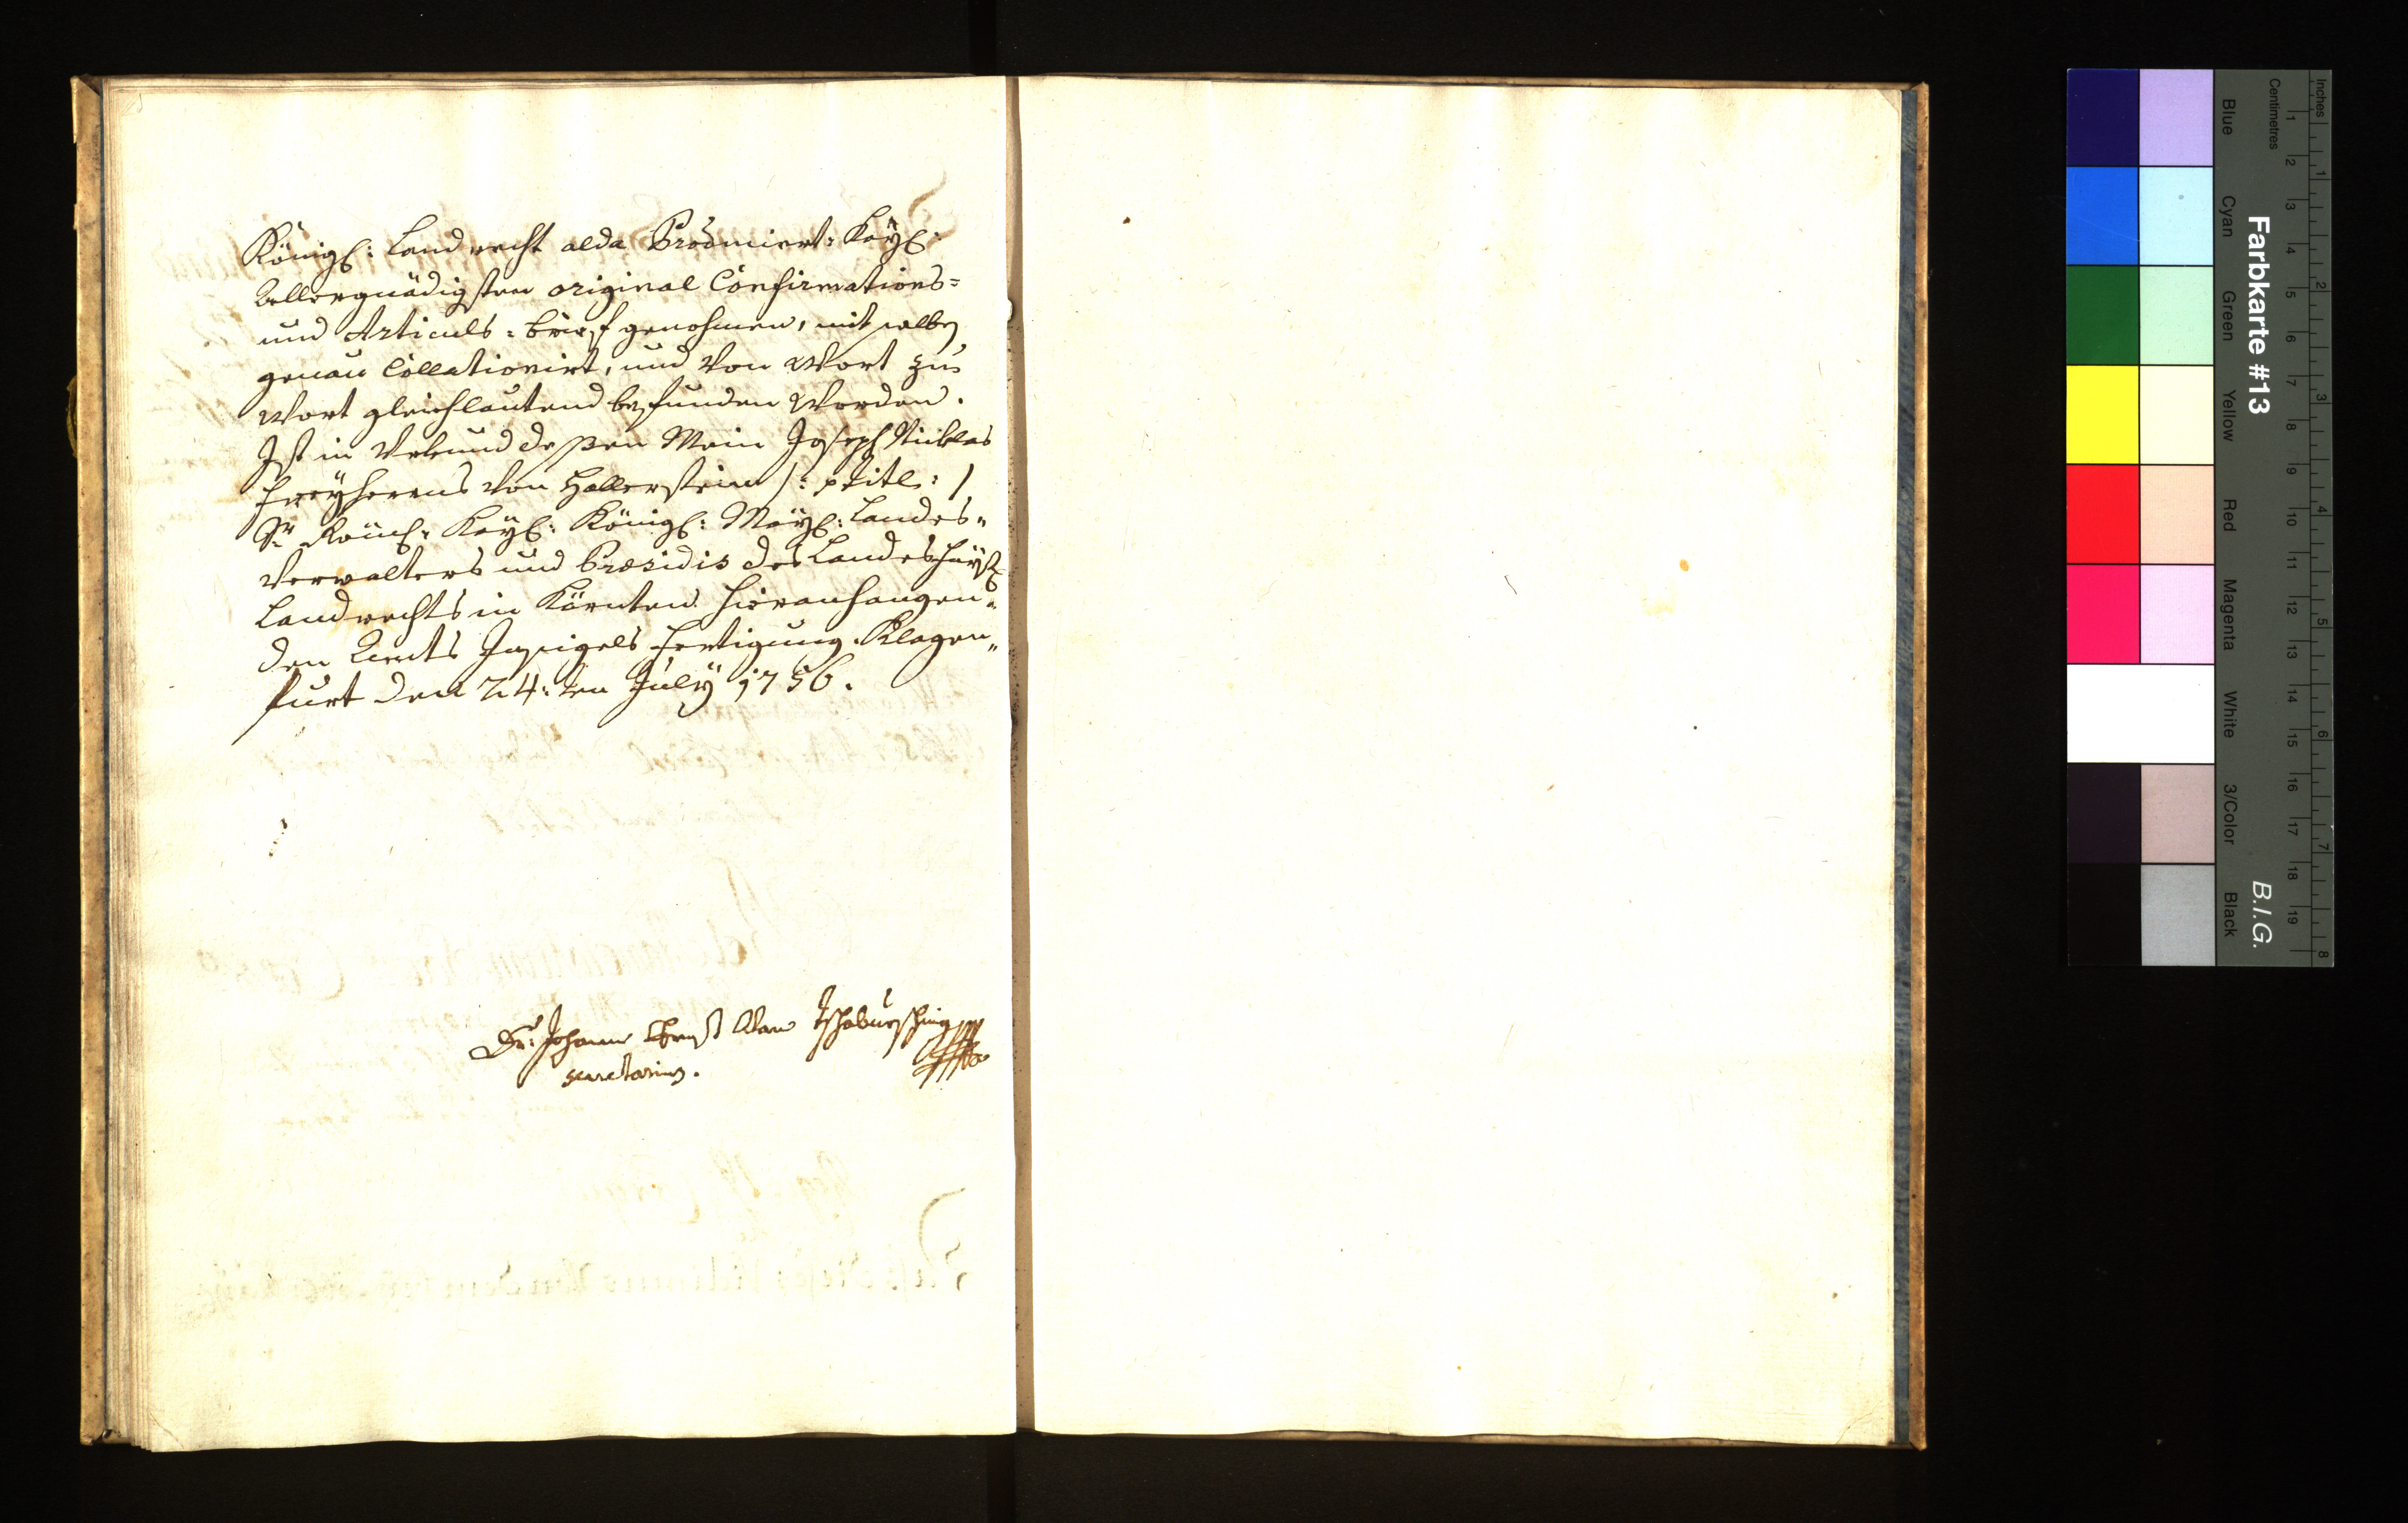 Königl: Landrecht alda Producirt: Kayl:
Allergnädigsten original Confirmations=
und Articuls=brief genohmen, mit selben
genau Collationirt, und Von Wort zu
Wort gleichlautend befunden Worden.
Ist in Urkund dessen Mein Joseph Niklas
Freyherrns von Hallerstein /: p titl: /
Sr Röml: Kayl: Königl: Mayl: Landes„
Verwalters und Præsidis des Landeshaubt
Landrechts in Kärnten hieranhangen„
den Ambts Insigels Fertigung. Klagen„
furt den 24:ten July 1756.
Dr: Johann Ernst
secretarius.
Farbkarte #13
B.I.G.
Inches
1 2 3 4 5 6 7 8
Centimetres
1 2 3 4 5 6 7 8 9 10 11 12 13 14 15 16 17 18 19
Blue
Cyan
Green
Yellow
Red
Magenta
White
3/Color
Black